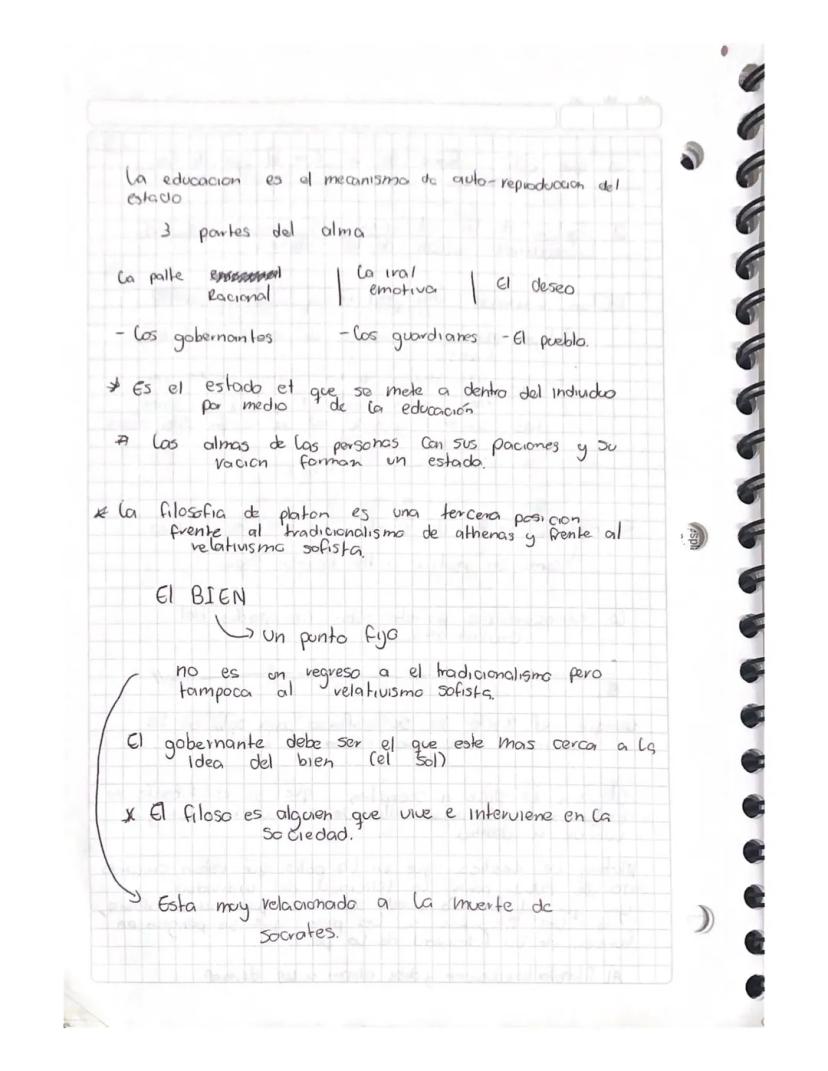 La educacion es el mecanismo de auto-reproduccion del
estado
3 partes del alma
La palte Racional | La iral emotiva | El deseo
- Los gobernantes - Los guardianes - El pueblo.
* Es el estado et que se mete a dentro del individuo
por medio de la educación
* Las almas de las personas Con sus paciones y su
racion forman un estado.
* La filosofia de platon es una tercera posicion
frente al tradicionalismo de athenas y frente al
relativismo sofista.
El BIEN
↳ un punto fijo
no es un regreso a el tradicionalismo pero
tampoca al relativismo sofista.
El gobernante debe ser el que este mas cerca a la
idea del bien (el sol)
x El filoso es alguen que vive e interviene en la
sociedad.
→ Esta muy relacionado a la muerte de
socrates.